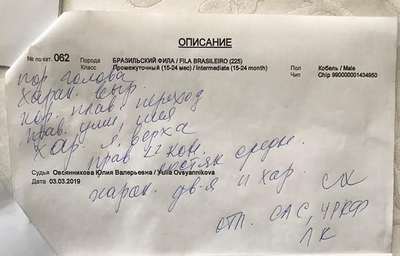 ОПИСАНИЕ
№ по кат. 062 Порода БРАЗИЛЬСКИЙ ФИЛА / FILA BRASILEIRO (225) Пол Кобель / Male
Класс Промежуточный (15-24 мес) / Intermediate (15-24 month) Чип Chip 990000001434950
пор. голова
харак. выр.
пор. прав. переход
прав. уши, шея
хар. л. верха
прав. кон.
костяк средн.
Судья Овсянникова Юлия Валерьевна / Yulia Ovsyannikova
Дата 03.03.2019
харак. дв-я и хар.
СК
отл. САС, ЧРКФ
ЛК